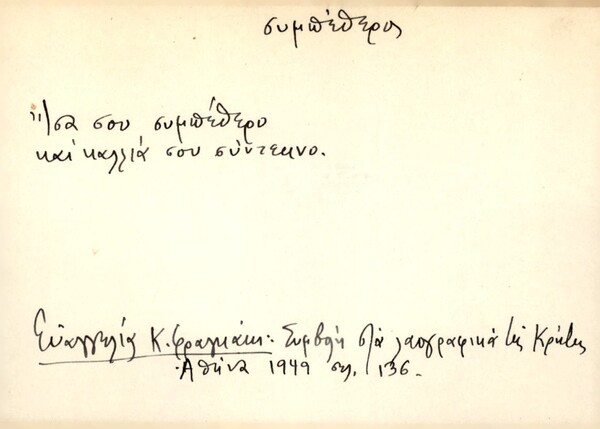 συμπέθερος
Ἴσα σου συμπέθερο
καί καλλιά σου σύντεκνο.
Εὐαγγελία Κ. Φραγκάκι: Συμβολή στά λαογραφικά τῆς Κρήτης
Ἀθήνα 1949 σελ. 136.